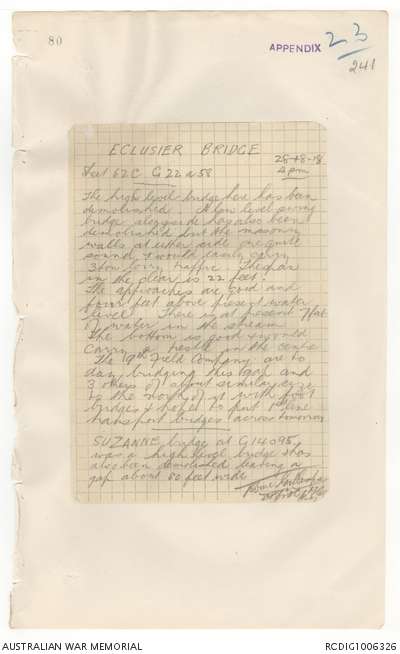 80
APPENDIX 23
241
ECLUSIER BRIDGE
28-8-18
4 pm
Sheet 62C G 22 a 58
The high level bridge here has been
demolished. A low level swing
bridge alongside has also been
demolished but the masonry
walls at either side are quite
sound & would easily carry
3 ton lorry traffic. The span
in the clear is 22 feet.
The approaches are good and
four feet above present water
level. There is at present 7 feet
of water in the stream
The bottom is good & would
carry a trestle in the centre
The 19th Field Company are to
day bridging this gap and
3 others of about similar size
to the north of it with foot
bridges & hope to put 1st line
transport bridges across tomorrow
SUZANNE bridge at G14 D 95,
was a high level bridge & has
also been demolished leaving a
gap about 50 feet wide
AUSTRALIAN WAR MEMORIAL
RCDIG1006326